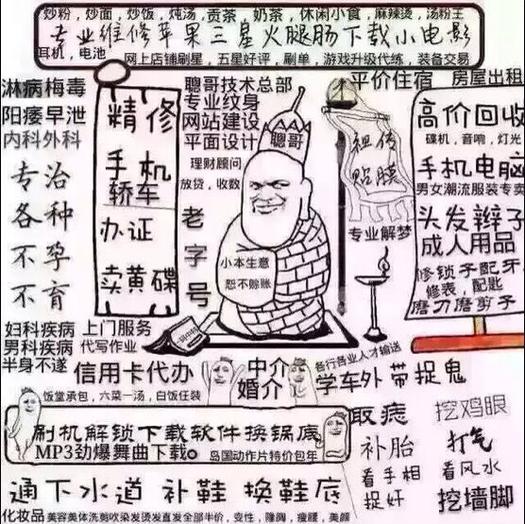 炒粉，炒面，炒饭，炖汤，贡茶，奶茶，休闲小食，麻辣烫，汤粉王
专业维修苹果三星火腿肠下载小电影
耳机，电池
网上店铺刷星，五星好评，刷单，游戏升级代练，装备交易
淋病梅毒
阳痿早泄
内科外科
专治
各种
不孕
不育
妇科疾病
男科疾病
半身不遂
精修
手机
轿车
办证
卖黄碟
上门服务
代写作业
聰哥技术总部
专业纹身
网站建设
平面设计
理财顾问
放贷，收数
老
字
号
聰哥
小本生意
恕不赊账
平价住宿 房屋出租
祖传
贴膜
专业解梦
高价回收
碟机，音响，灯光
手机电脑
男女潮流服装专卖
头发辫子
成人用品
修锁子配牙
修表，配匙
磨刀磨剪子
信用卡代办
饭堂承包，六菜一汤，白饭任装
中介
婚介
各行各业人才输送
学车外带捉鬼
刷机解锁下载软件换锅底
MP3劲爆舞曲下载。
岛国动作片特价包年
取痣
补胎
看手相
捉奸
挖鸡眼
打气
看风水
挖墙脚
通下水道 补鞋 换鞋底
化妆品 美容美体洗剪吹染发烫发直发全部半价，变性，隆胸，瘦腰，美颜